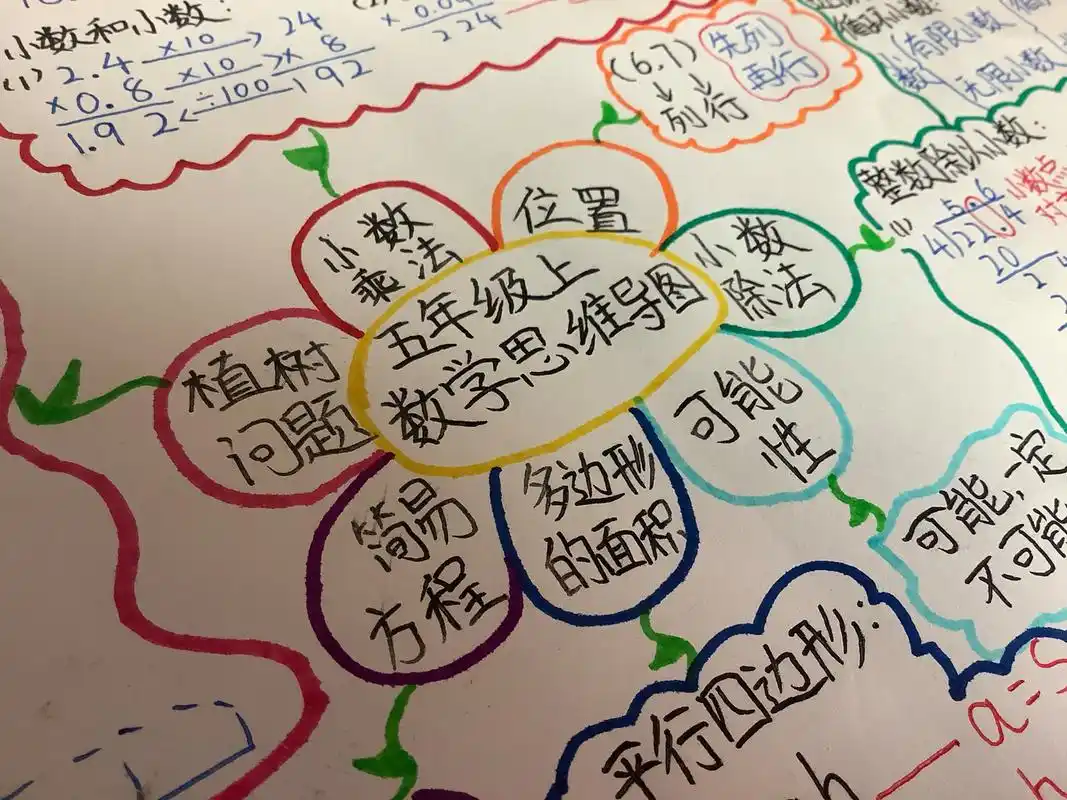 小数和小数:
(1) 2.4 ×10 → 24
×0.8 ×10 → × 8
1.92 ←÷100 192
× 0.0
224
(6.7)
↓ ↓
列行
先列
再行
循环小数
有限小数
数
无限小数
整数除以小数:
(1)
5.6
4)22.4
20
2
小数点
小数
乘法
位置
小数
除法
五年级上
数学思维导图
植树
问题
可能
性
简易
方程
多边形
的面积
可能,一定
不可能
平行四边形:
a=S
h
h